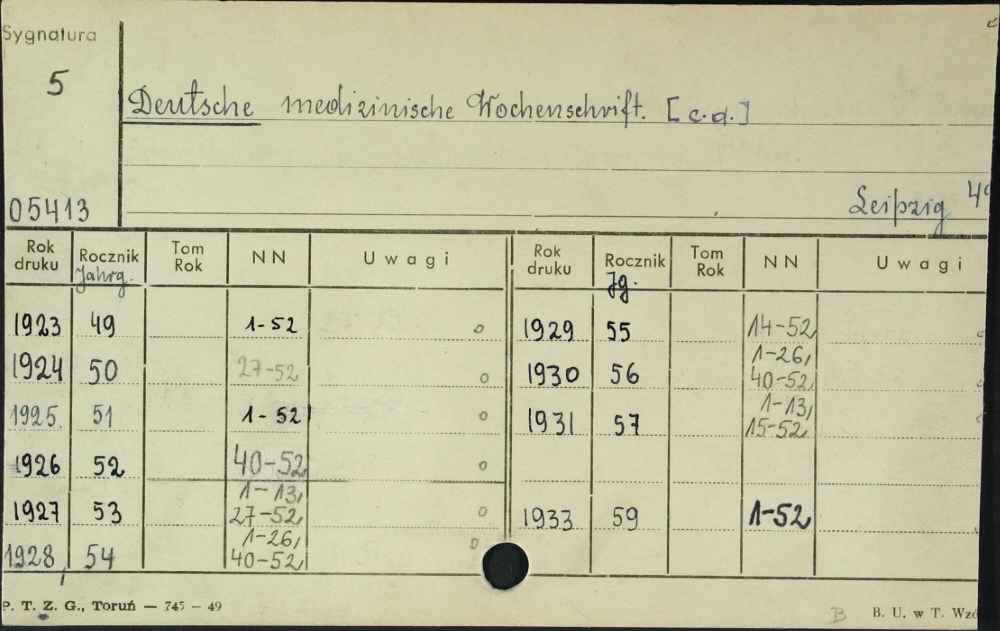 Sygnatura
5
Deutsche medizinische Wochenschrift. [c.d.]
05413
Leipzig 4°
Rok druku Rocznik Jahrg. Tom Rok NN Uwagi Rok druku Rocznik Jg. Tom Rok NN Uwagi
1923 49 1-52 o 1929 55 14-52,
1924 50 27-52 o 1930 56 1-26, 40-52,
1925. 51 1-52 o 1931 57 1-13, 15-52,
1926 52 40-52, o
1927 53 1-13, 27-52, o 1933 59 1-52
1928, 54 1-26, 40-52, o
P. T. Z. G., Toruń — 745 — 49
B B. U. w T.